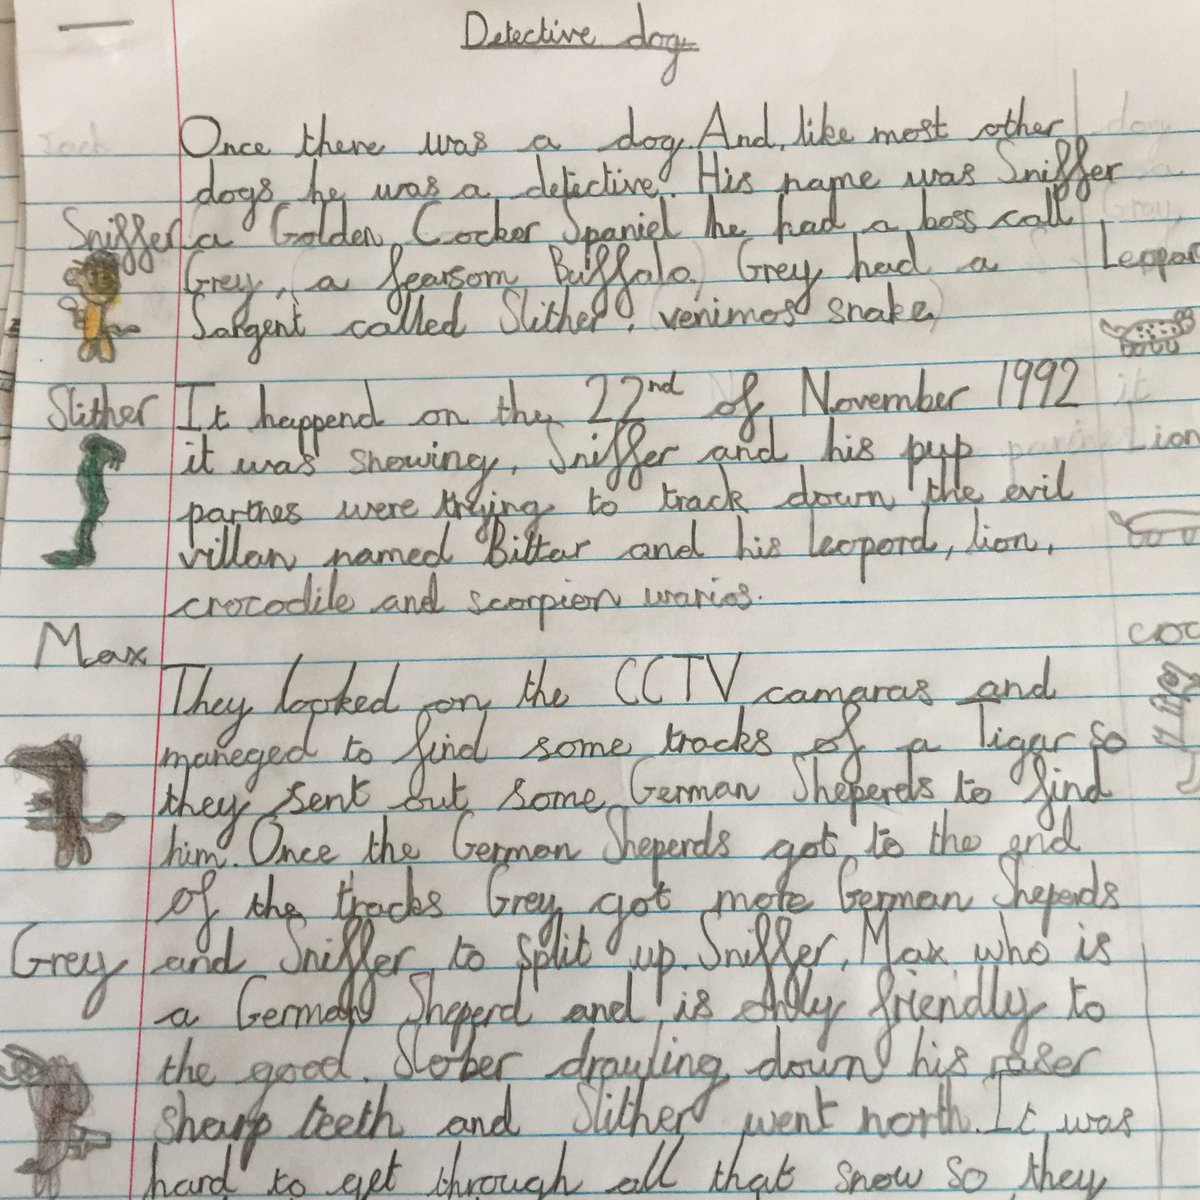 Detective dog
Once there was a dog. And, like most other
dogs he was a detective. His name was Sniffer
a Golden Cocker Spaniel he had a boss call
Grey, a fearsom Buffalo. Grey had a
Sargent called Slither, venimos snake
It happend on the 22nd of November 1992
it was snowing, Sniffer and his pup
partnes were trying to track down the evil
villan named Bittar and his leopord, lion,
crocodile and scorpion warios.
They looked on the CCTV camaras and
maneged to find some tracks of a ligar so
they sent out some German Sheperds to find
him. Once the German Sheperds got to the end
of the tracks Grey got more German Sheperds
and Sniffer to split up. Sniffer, Max who is
a German Sheperd and is only friendly to
the good. Slober drauling down his raser
sharp teeth and Slither went north. It was
hard to get through all that snow so they
Sniffer
Slither
Max
Grey
Leopar
Lion
croc